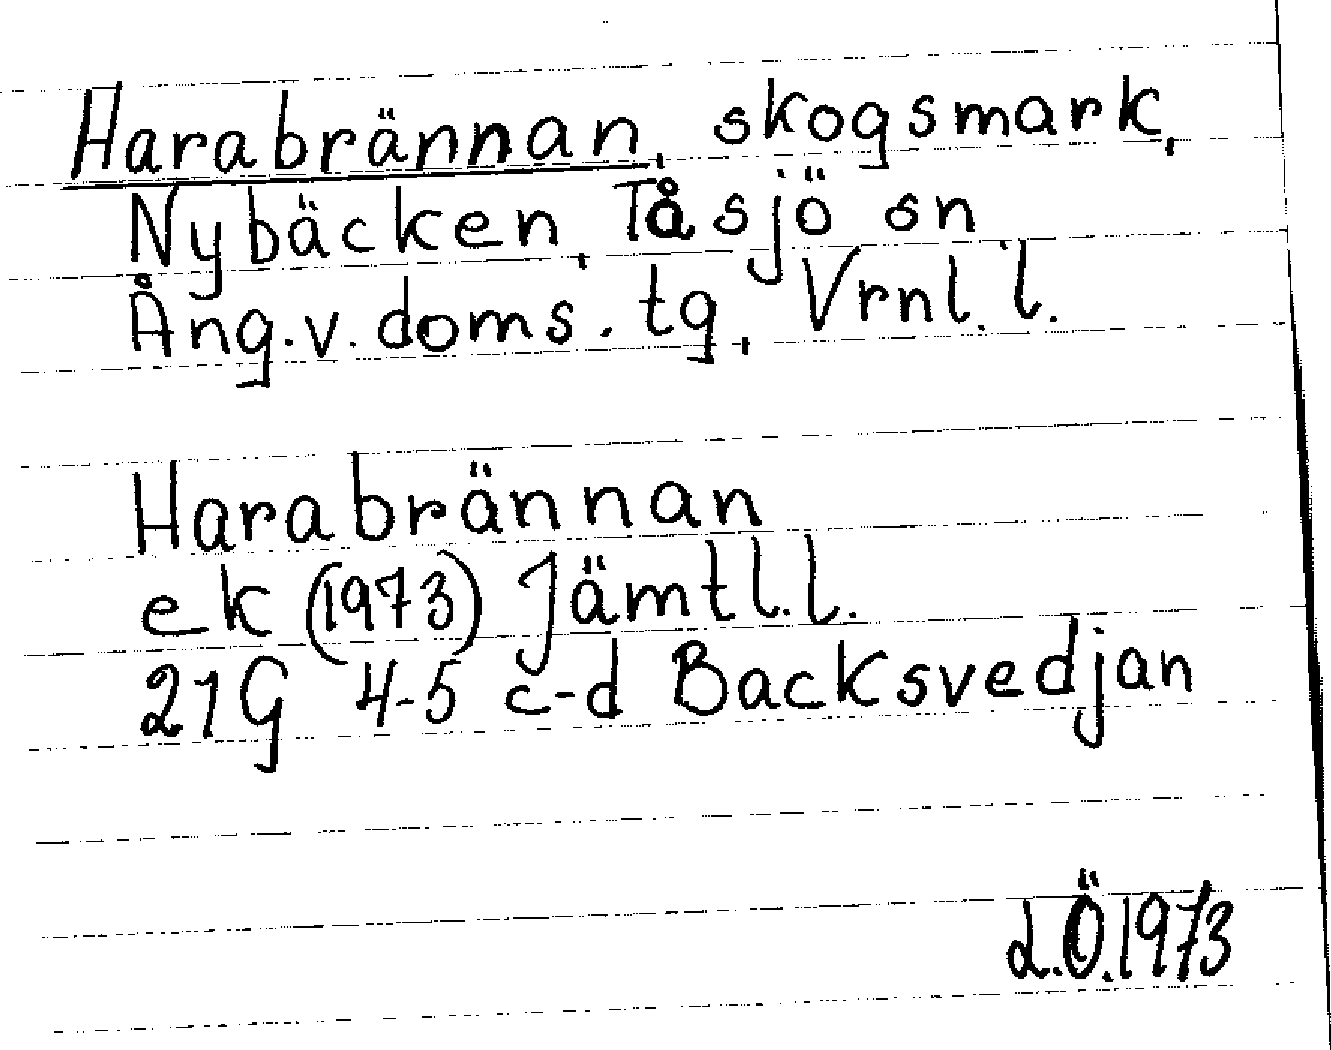 Harabrännan, skogsmark,
Nybäcken, Tåsjö sn
Ång.v. doms. tg, Vrnl. l.
Harabrännan
ek (1973) Jämtl.l.
21G 4-5 c-d Backsvedjan
L.Ö.1973